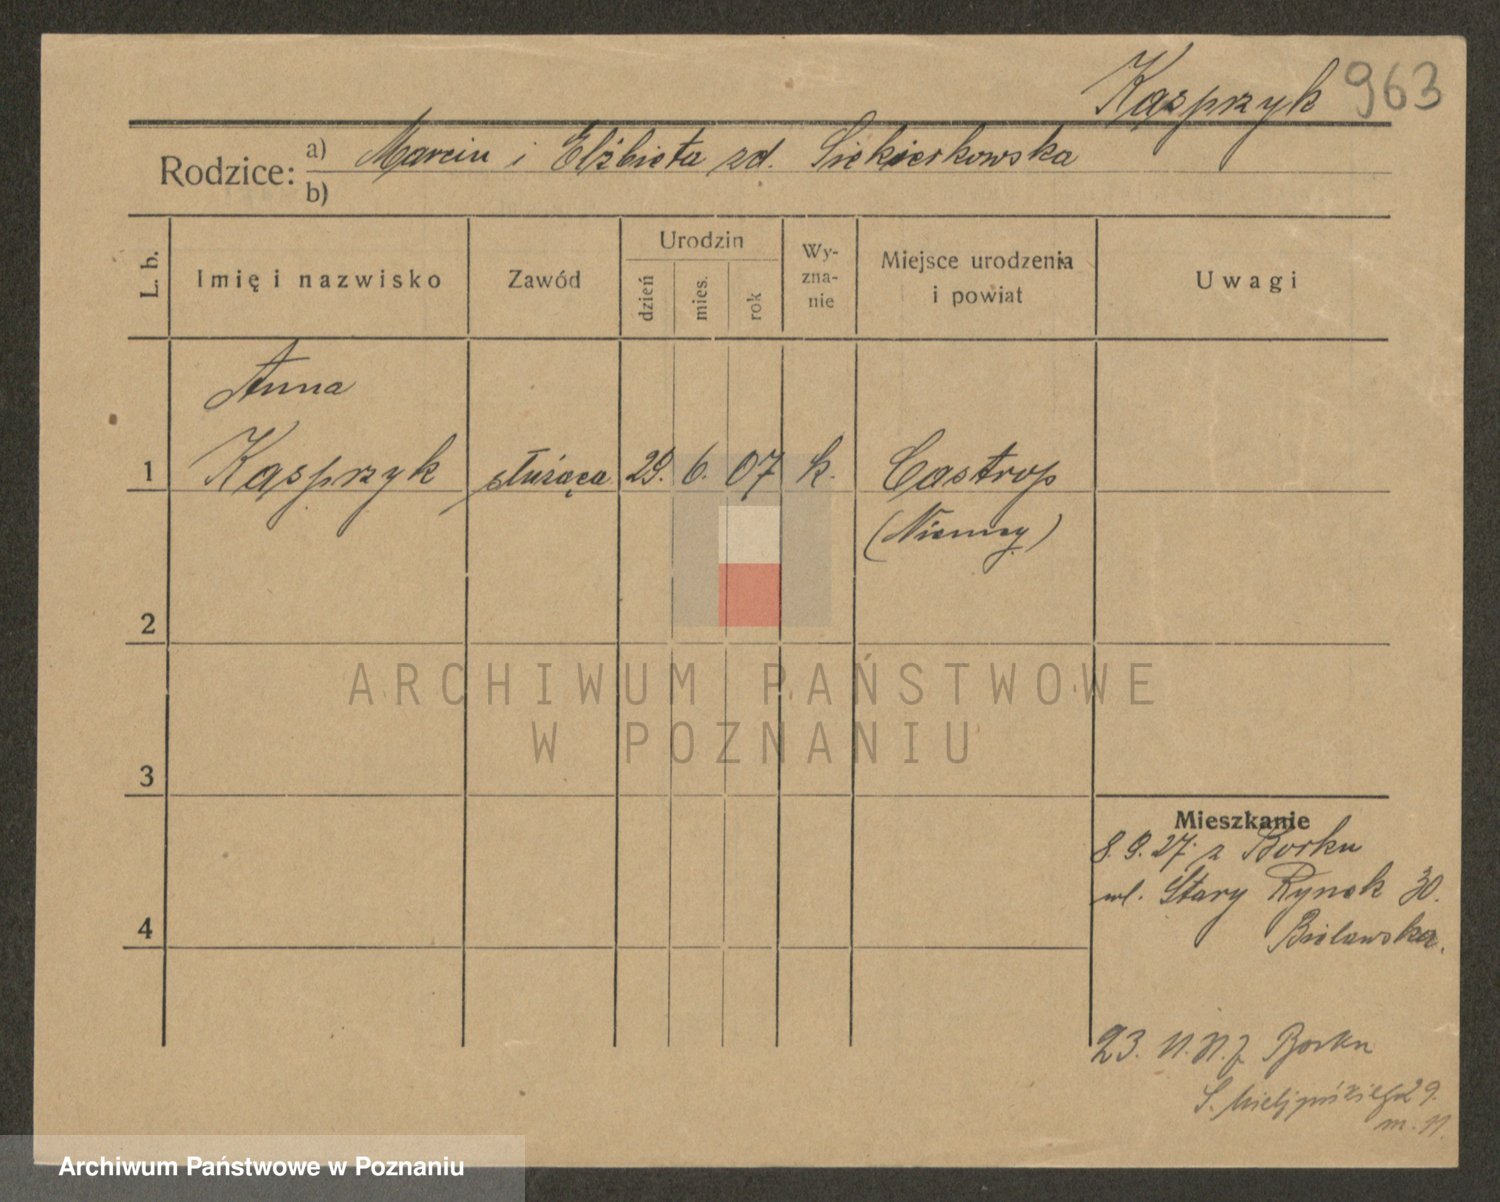 Kasprzyk 963
Rodzice: a) Marcin i Elżbieta zd. Siekierkowska
b)
L. b.
Imię i nazwisko
Zawód
Urodzin
dzień
mies.
rok
Wy-
zna-
nie
Miejsce urodzenia
i powiat
Uwagi
Anna
1 Kasprzyk służąca 29. 6. 07 k. Castrop
(Niemcy)
2
ARCHIWUM PAŃSTWOWE
W POZNANIU
3
Mieszkanie
8.9.27. z Borku
ul. Stary Rynek 30.
Bielawska.
4
23. Borku
29.
m. 11.
Archiwum Państwowe w Poznaniu